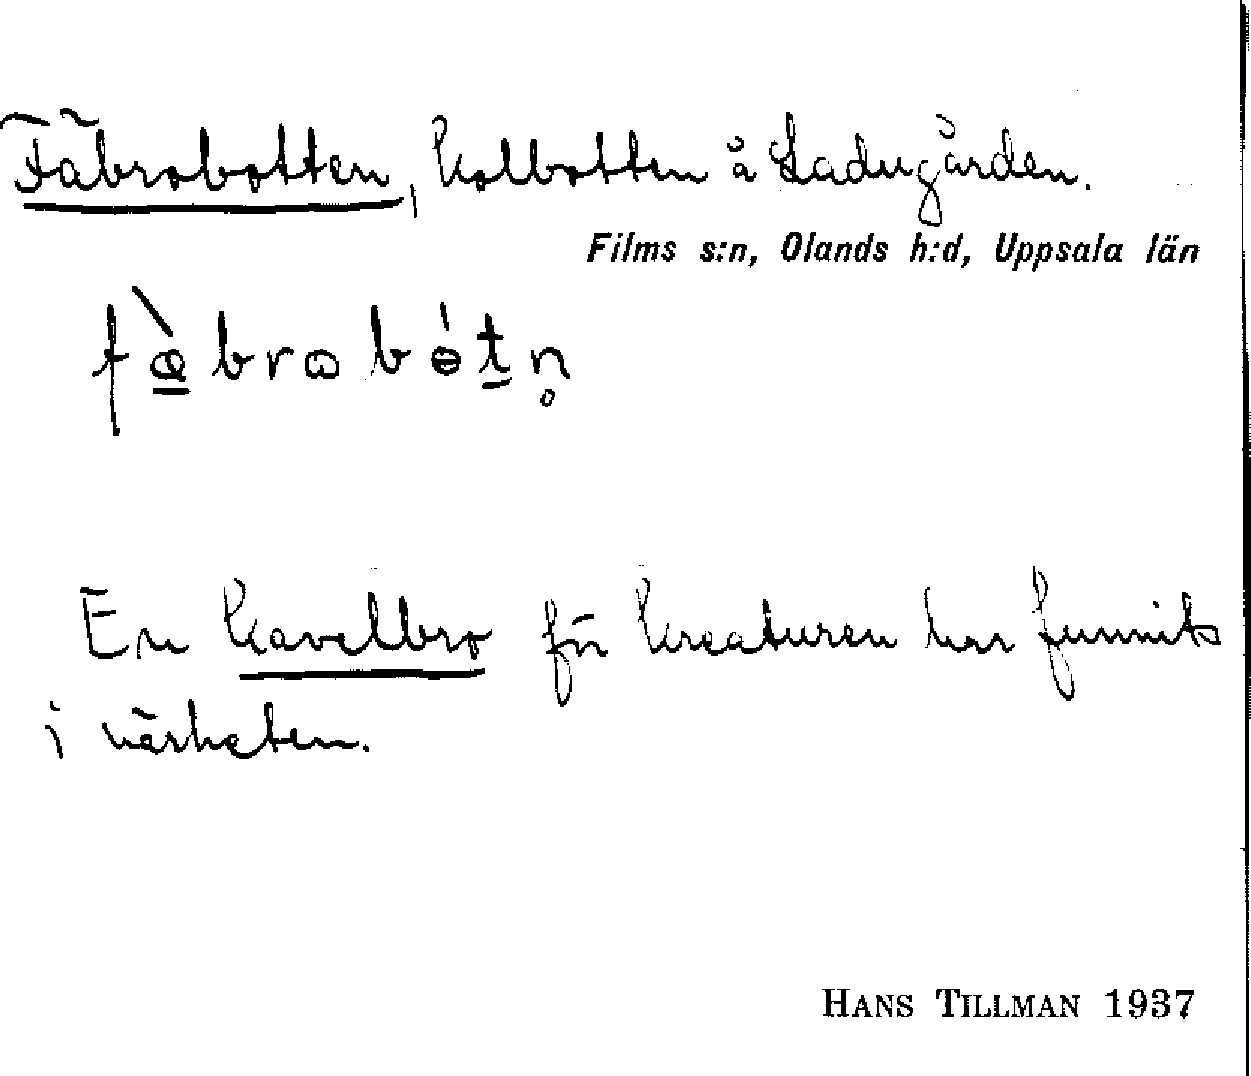 Fäbrobotten, kolbotten å Ladugården.
Films s:n, Olands h:d, Uppsala län
fæ̀brωbɵ́tn̥
En kavelbro för kreaturen har funnits
i närheten.
HANS TILLMAN 1937